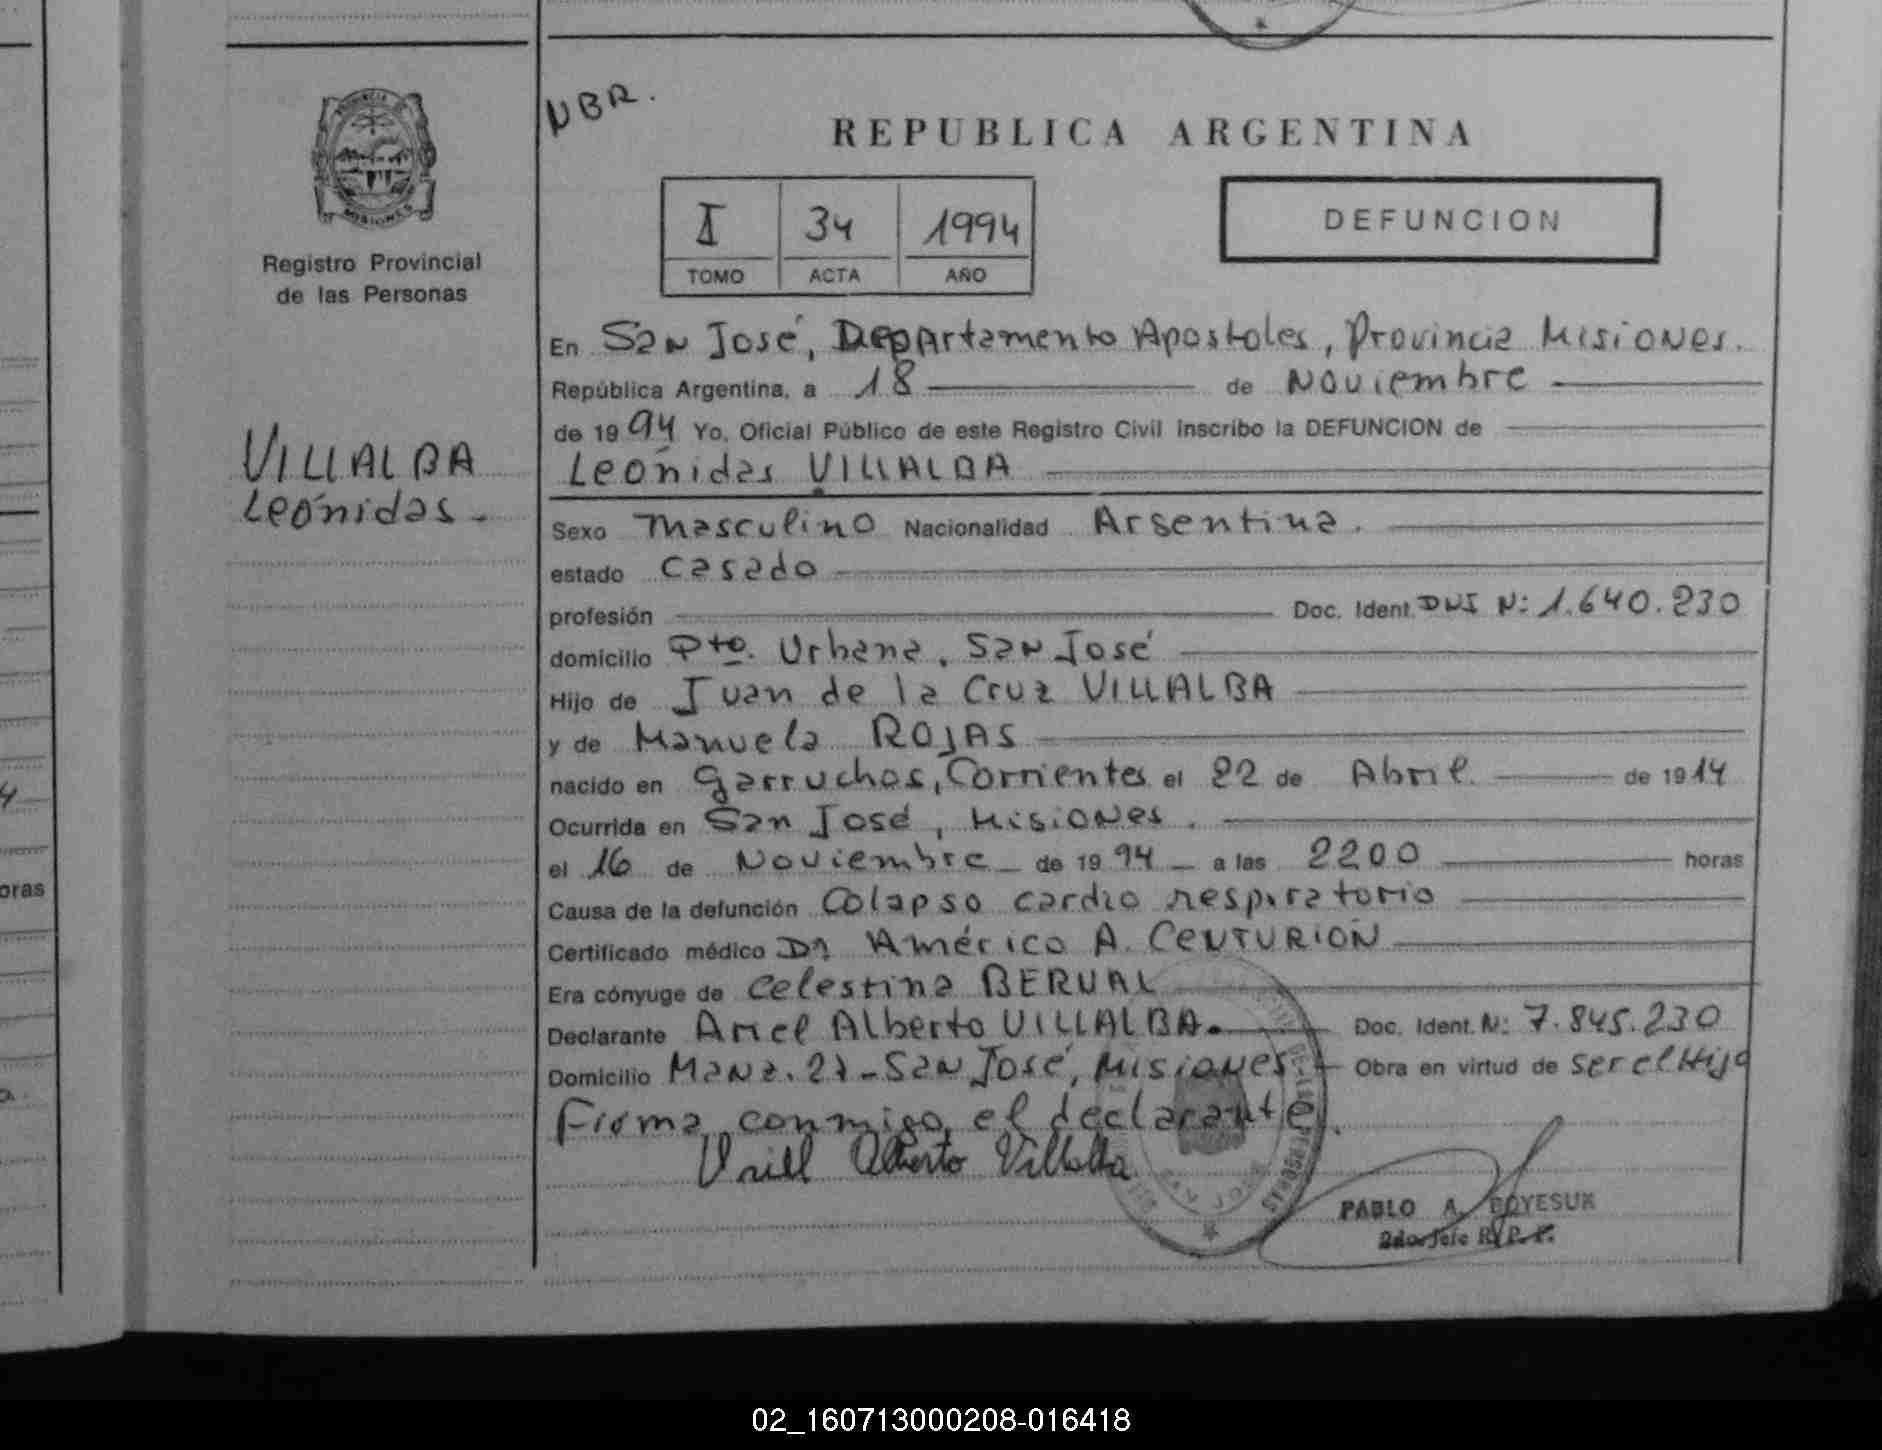 PROVINCIA DE
MISIONES
Registro Provincial
de las Personas
VILLALBA
Leónidas.
NBR.
REPUBLICA ARGENTINA
I 34 1994
TOMO ACTA AÑO
DEFUNCION
En San José, Departamento Apostoles, Provincia Misiones.
República Argentina, a 18 de Noviembre
de 1994 Yo, Oficial Público de este Registro Civil Inscribo la DEFUNCION de
Leónidas VILLALBA
Sexo Masculino Nacionalidad Argentina.
estado Casado
profesión Doc. Ident. DNI N: 1.640.230
domicilio Pta. Urbana, San José
Hijo de Juan de la Cruz VILLALBA
y de Manuela ROJAS
nacido en Garruchos, Corrientes el 22 de Abril de 1914
Ocurrida en San José, Misiones.
el 16 de Noviembre de 1994 a las 2200 horas
Causa de la defunción Colapso cardio respiratorio
Certificado médico Dr Américo A. CENTURIÓN
Era cónyuge de Celestina BERVAL
Declarante Ariel Alberto VILLALBA. Doc. Ident. N: 7.845.230
Domicilio Manz. 27 - San José, Misiones. Obra en virtud de ser el Hijo
Firma conmigo el declarante.
Alberto Villalba
SAN JOSE
PABLO A. BOYESUK
2do. Jefe R. P. P.
oras
02_160713000208-016418